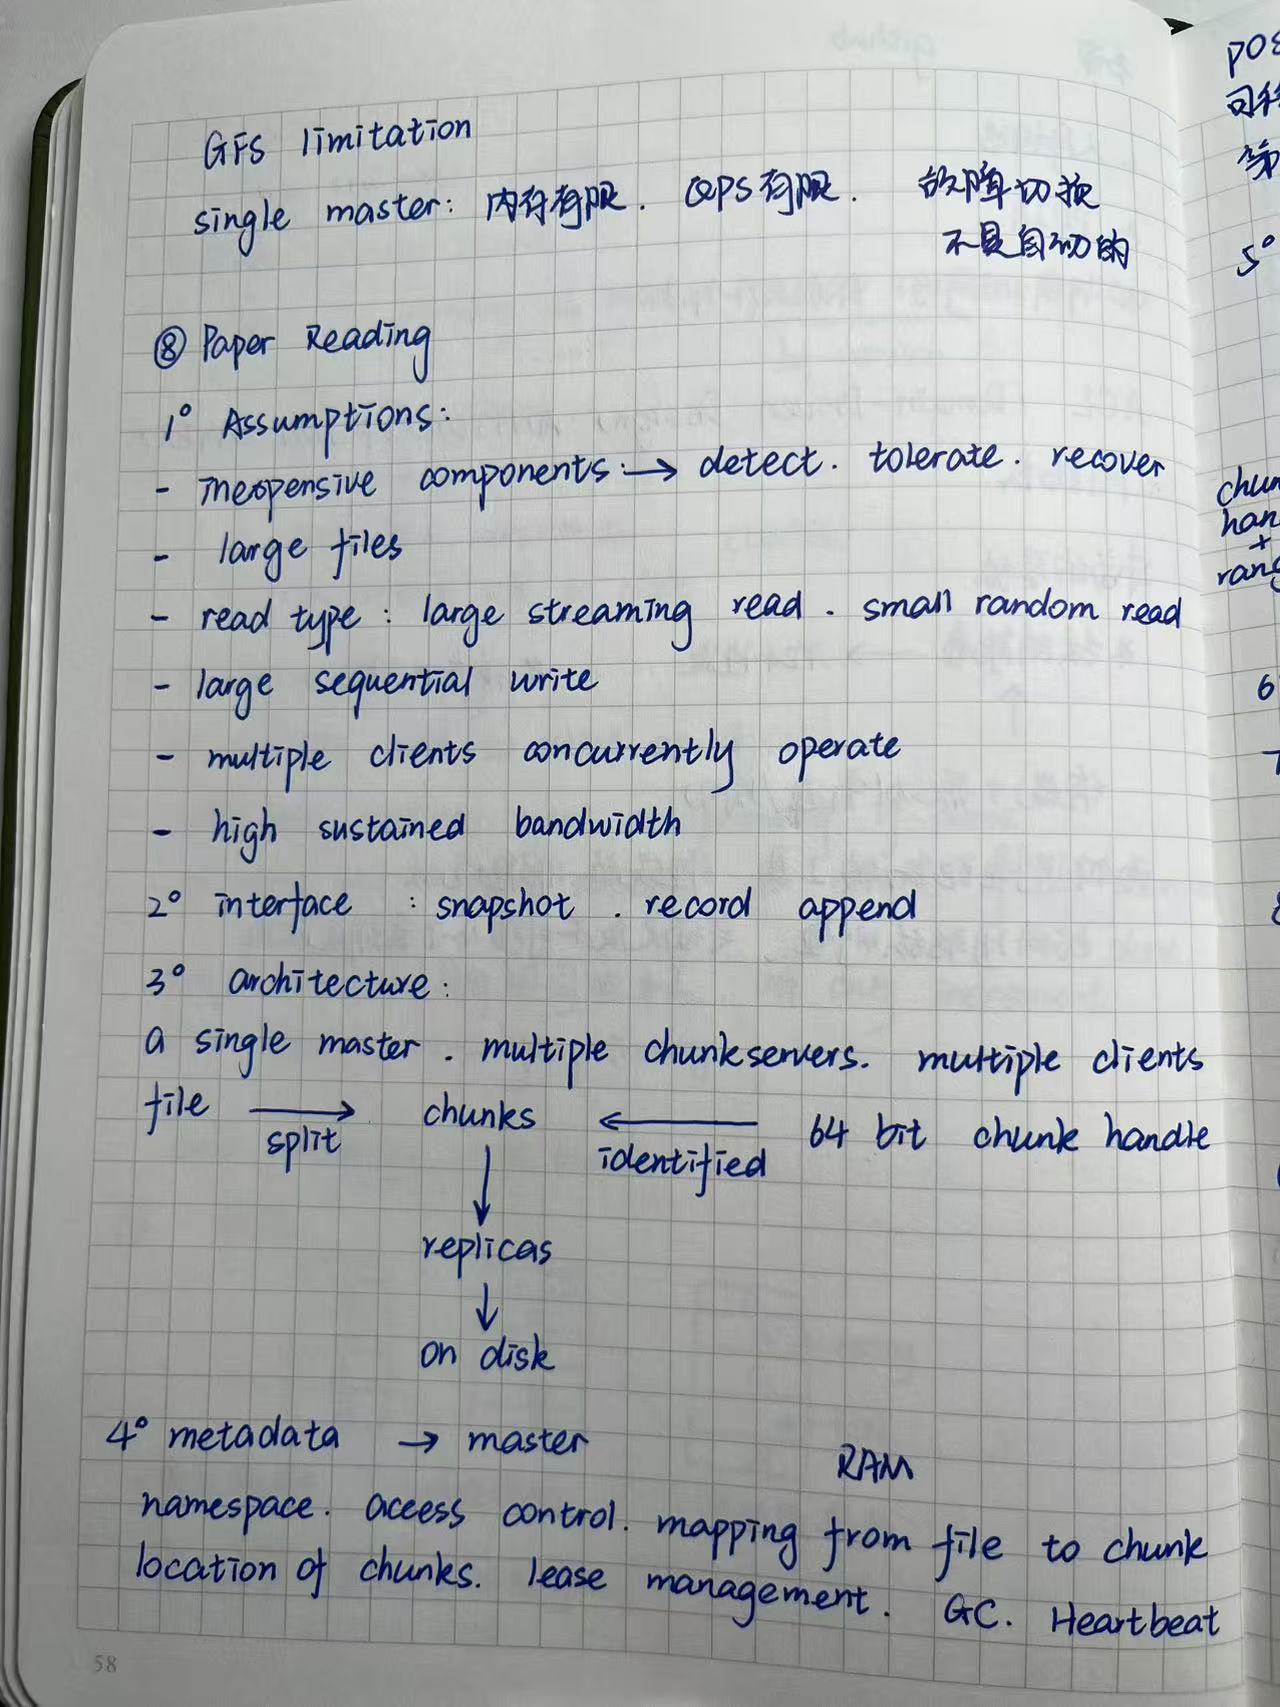 GFS limitation
single master: 内存有限. QPS有限. 故障切换
不是自动的
⑧ Paper Reading
1° Assumptions:
- inexpensive components: → detect. tolerate. recover
- large files
- read type: large streaming read. small random read
- large sequential write
- multiple clients concurrently operate
- high sustained bandwidth
2° interface: snapshot. record append
3° architecture:
a single master. multiple chunkservers. multiple clients
file → chunks ← 64 bit chunk handle
split identified
↓
replicas
↓
on disk
4° metadata → master
RAM
namespace. access control. mapping from file to chunk
location of chunks. lease management. GC. Heartbeat
58
5°
chun
han
+
rang
6